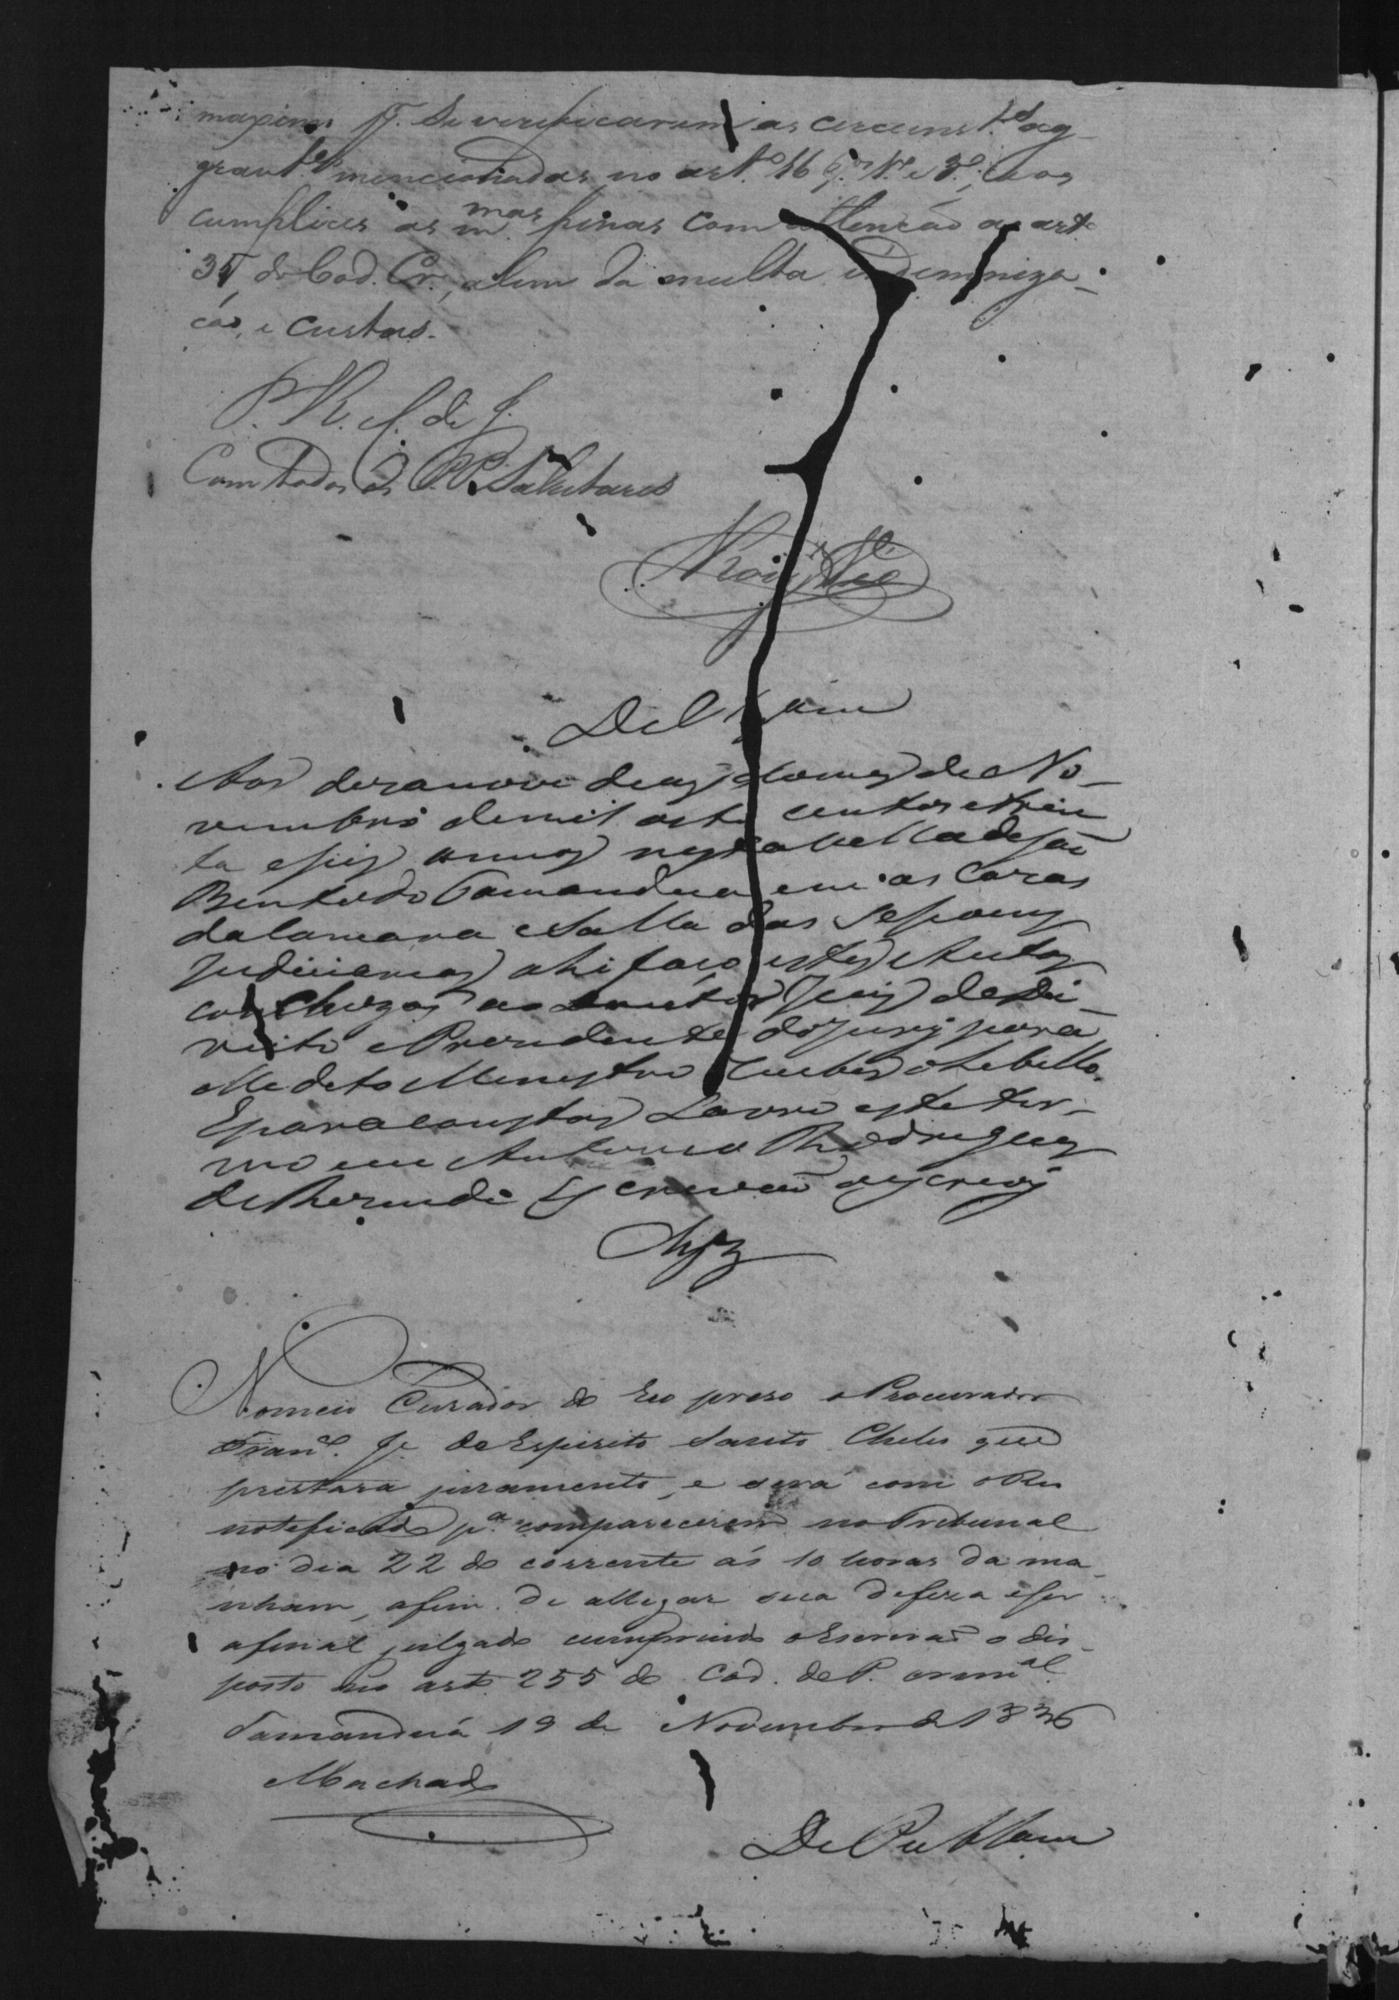 maximo pr. se verificarem as circunst.as ag-
grav.tes mencionadas no art.o 16 §.os 1.o e 3.o, e aos
cumplices as m.mas penas com attenção ao art.o
35 do Cod. Cr., alem da multa indemniza-
ção, e custas.
P. R. e C. de J.
Com todos os PP. Salutares
Aos dezanove dias do mes de No-
vembro de mil oito centos e trin
ta e seis annos nesta Villa de São
Bento do Tamandua em as Cazas
da Camara e Salla das Sessoens
Judiciarias ahi faço estes Autos
conchuzos ao Doutor Juis de Di-
reito e Prezidente do Jury para
o Libello.
E para constar Lavro este ter-
mo eu Antonio Rodrigues
de Rezende Escrivão o escrevi
Clzoz
Nomeio Curador do Reo prezo o Procurador
Fran.co Je. do Espirito Santo que
prestará juramento, e será com o Reo
notificado p.a comparecerem no Tribunal
no dia 22 do corrente ás 10 horas da ma-
nham, afim de allegar sua defeza e ser
afinal julgado cumprindo o Escrivão o dis-
posto no art. 255 do Cod. de P. crim.al
Tamanduá 19 de Novembro de 1836
Machado
De Publlam